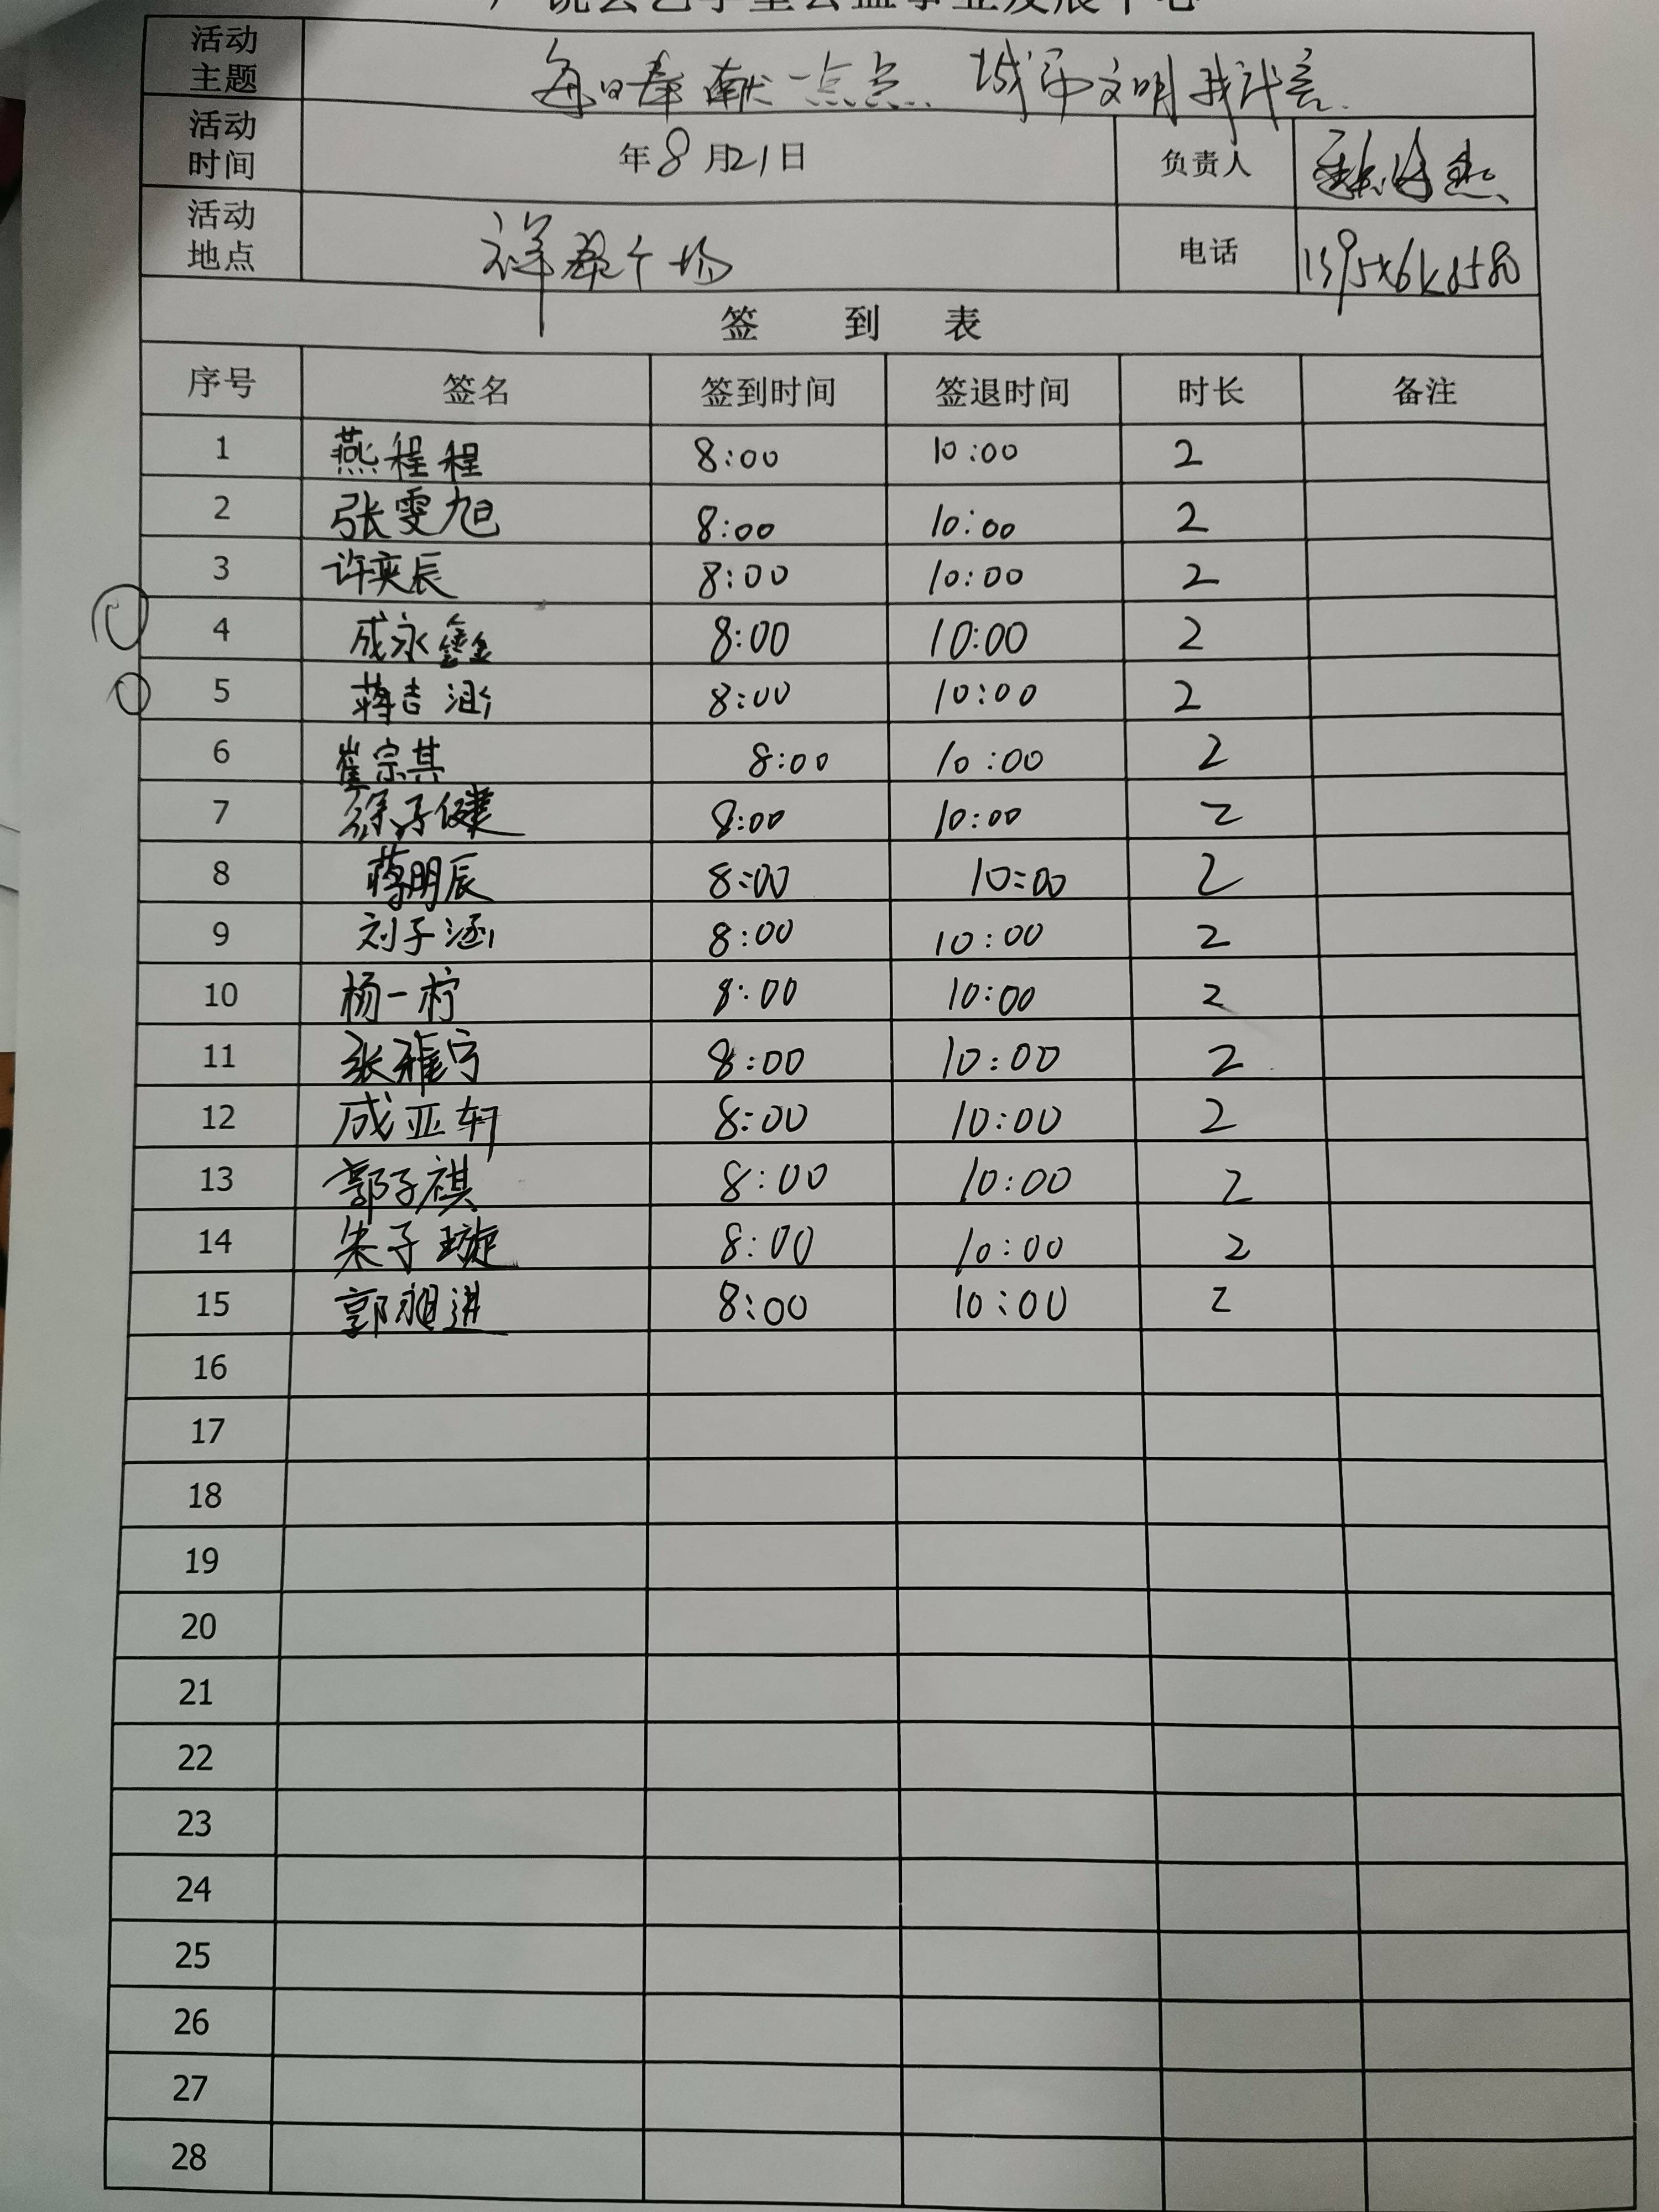 活动主题 每日奉献一点点 城市文明我计言
活动时间 年8月21日 负责人
活动地点 祥泰广场 电话
签到表
序号 签名 签到时间 签退时间 时长 备注
1 燕程程 8:00 10:00 2
2 张雯旭 8:00 10:00 2
3 许奕辰 8:00 10:00 2
4 成永鑫 8:00 10:00 2
5 蒋吉涵 8:00 10:00 2
6 崔宗其 8:00 10:00 2
7 徐子健 8:00 10:00 2
8 蒋明辰 8:00 10:00 2
9 刘子涵 8:00 10:00 2
10 杨一柠 8:00 10:00 2
11 张雅宁 8:00 10:00 2
12 成亚轩 8:00 10:00 2
13 郭子祺 8:00 10:00 2
14 朱子璇 8:00 10:00 2
15 郭昶进 8:00 10:00 2
16
17
18
19
20
21
22
23
24
25
26
27
28